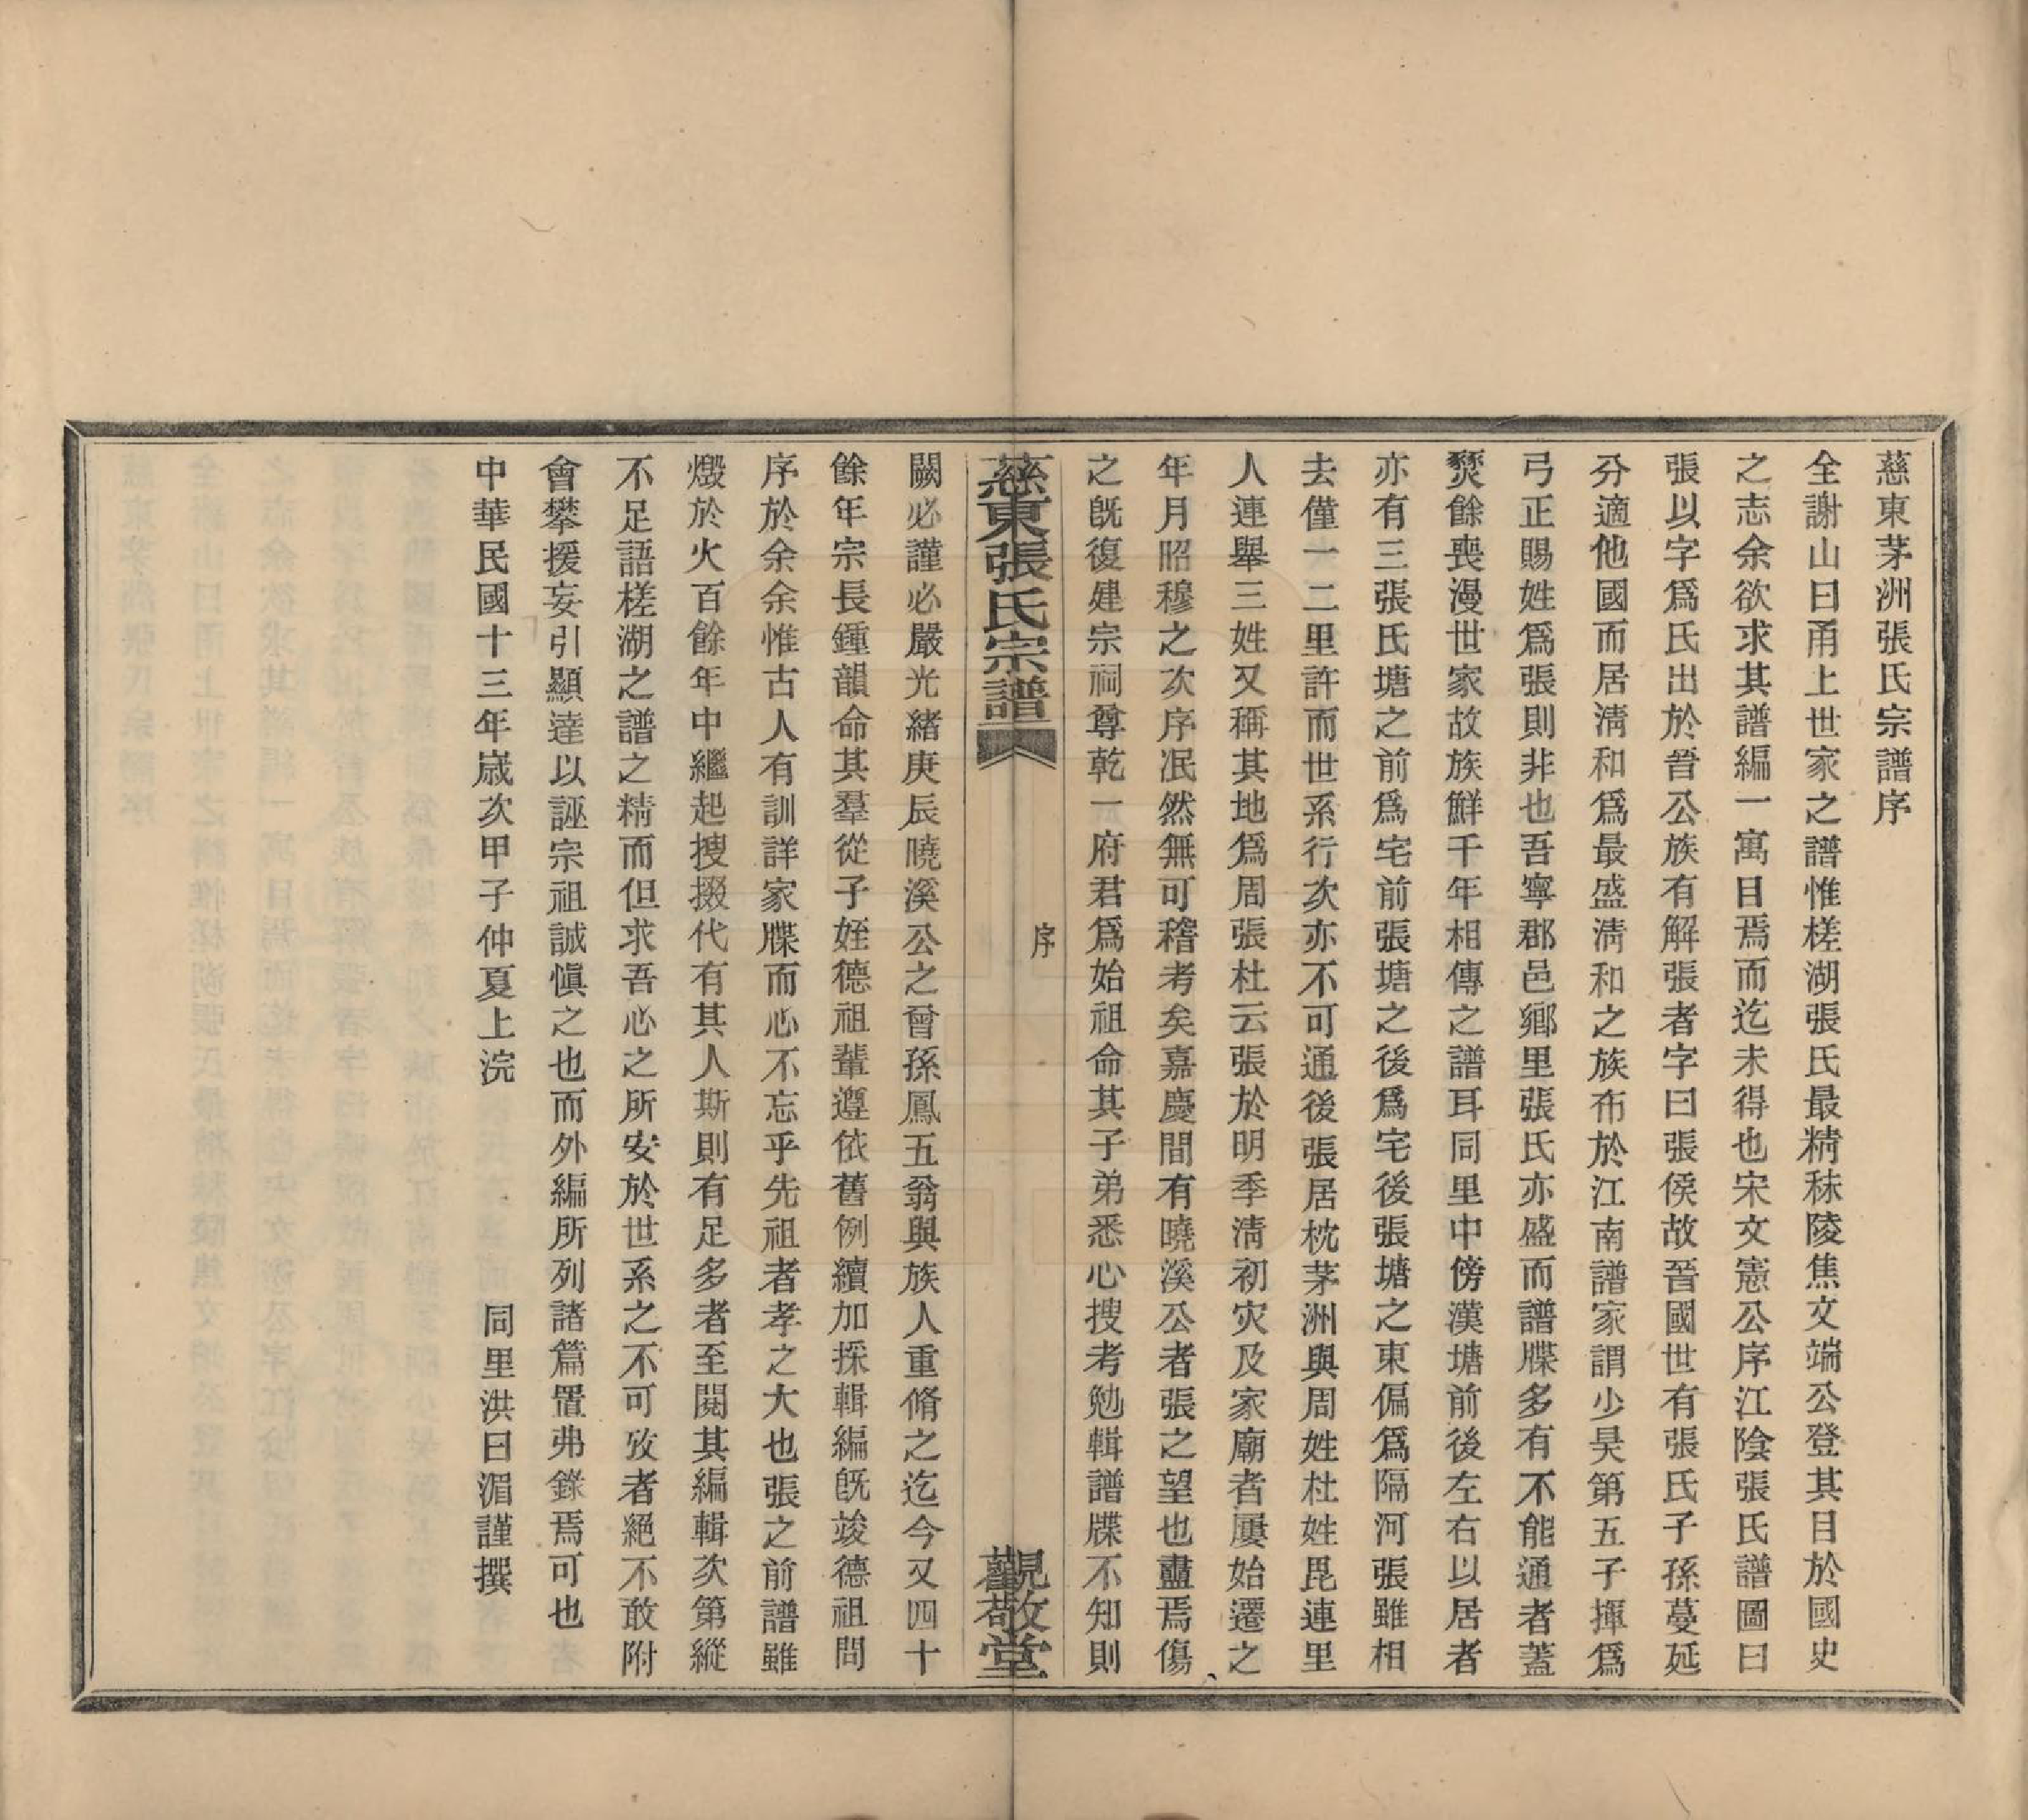 慈東茅洲張氏宗譜序
全謝山曰甬上世家之譜惟槎湖張氏最精秣陵焦文端公登其目於國史
之志余欲求其譜編一寓目焉而迄未得也宋文憲公序江陰張氏譜圖曰
張以字爲氏出於晉公族有解張者字曰張侯故晉國世有張氏子孫蔓延
分適他國而居淸和爲最盛淸和之族布於江南譜家謂少昊第五子揮爲
弓正賜姓爲張則非也吾寧郡邑鄉里張氏亦盛而譜牒多有不能通者蓋
燹餘喪漫世家故族鮮千年相傳之譜耳同里中傍漢塘前後左右以居者
亦有三張氏塘之前爲宅前張塘之後爲宅後張塘之東偏爲隔河張雖相
去僅一二里許而世系行次亦不可通後張居枕茅洲與周姓杜姓毘連里
人連舉三姓又稱其地爲周張杜云張於明季淸初灾及家廟者屢始遷之
年月昭穆之次序泯然無可稽考矣嘉慶間有曉溪公者張之望也盡焉傷
之旣復建宗祠尊乾一府君爲始祖命其子弟悉心搜考勉輯譜牒不知則
慈東張氏宗譜
序
觀敬堂
闕必謹必嚴光緒庚辰曉溪公之曾孫鳳五翁與族人重脩之迄今又四十
餘年宗長鍾韻命其羣從子姪德祖輩遵依舊例續加採輯編旣竣德祖問
序於余余惟古人有訓詳家牒而心不忘乎先祖者孝之大也張之前譜雖
燬於火百餘年中繼起搜掇代有其人斯則有足多者至閱其編輯次第縱
不足語槎湖之譜之精而但求吾心之所安於世系之不可攷者絕不敢附
會攀援妄引顯達以誣宗祖誠愼之也而外編所列諸篇置弗錄焉可也
中華民國十三年嵗次甲子仲夏上浣　同里洪曰湄謹撰